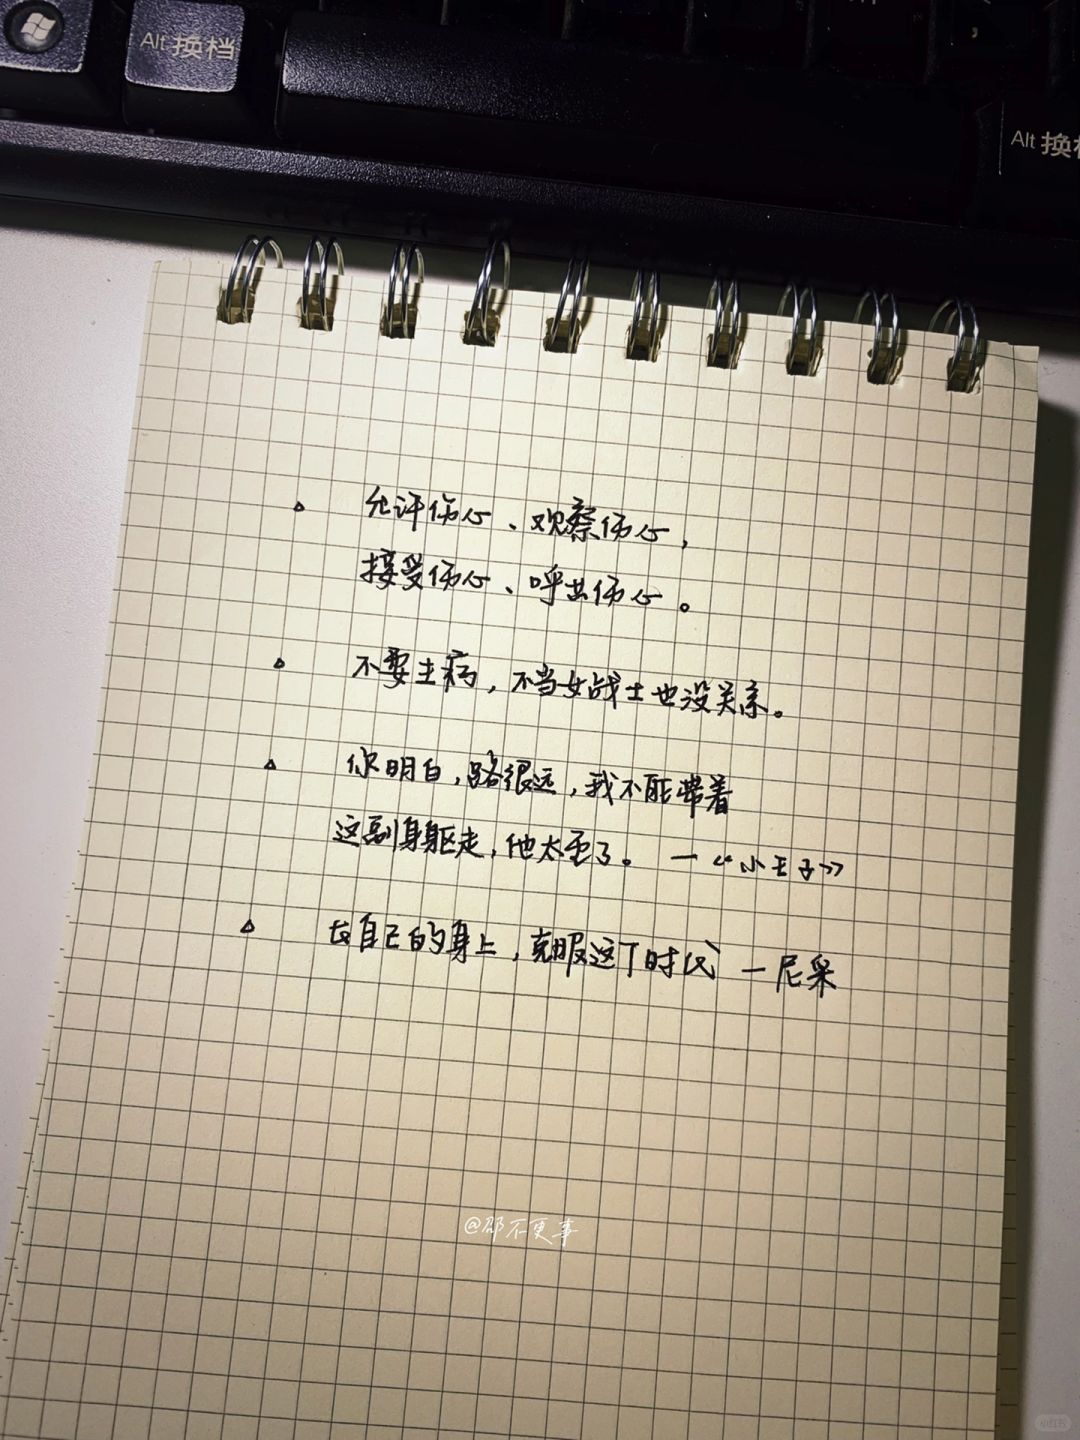 Alt 换档
Alt 换档
允许伤心、观察伤心，
接受伤心、呼出伤心。
不要生病，不当女战士也没关系。
你明白，路很远，我不能带着
这副身躯走，他太重了。—《小王子》
在自己的身上，克服这个时代 —尼采
@邵不更事
小红书